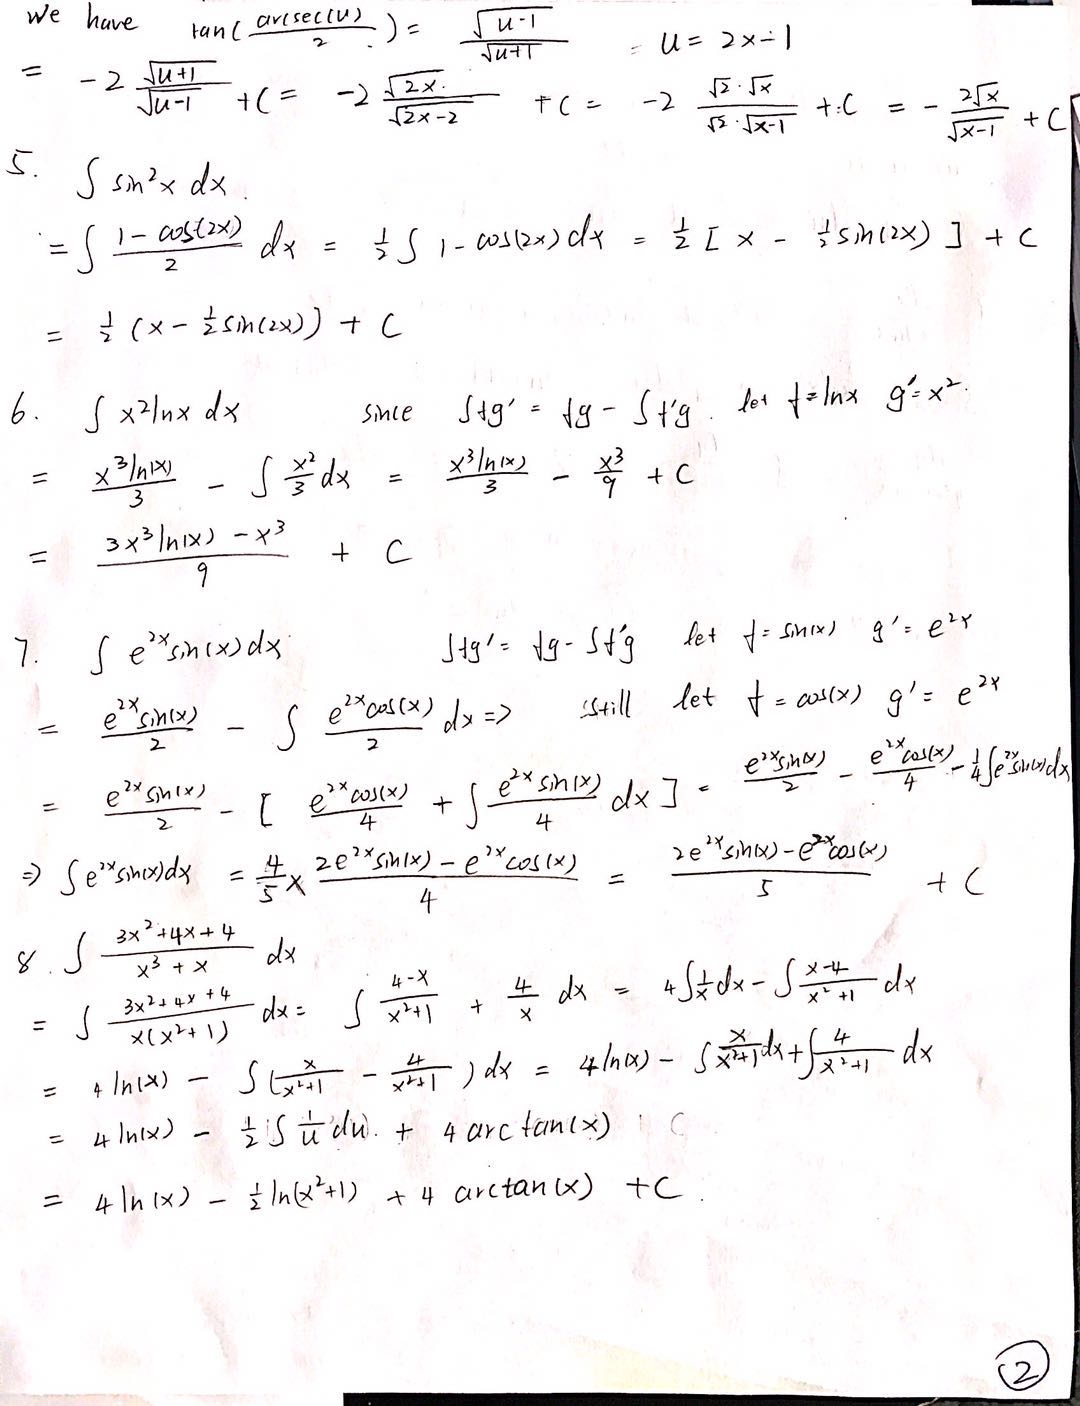 We have tan(arcsec(u)/2) = √(u-1)/√(u+1) u = 2x-1
= -2 √(u+1)/√(u-1) + C = -2 √(2x)/√(2x-2) + C = -2 (√2·√x)/(√2·√(x-1)) + C = - 2√x/√(x-1) + C
5. ∫ sin²x dx
= ∫ (1-cos(2x))/2 dx = ½ ∫ 1-cos(2x) dx = ½ [ x - ½ sin(2x) ] + C
= ½ (x - ½ sin(2x)) + C
6. ∫ x²lnx dx since ∫fg' = fg - ∫f'g. let f=lnx g'=x².
= x³ln(x)/3 - ∫ x²/3 dx = x³ln(x)/3 - x³/9 + C
= (3x³ln(x) - x³)/9 + C
7. ∫ e^(2x)sin(x)dx ∫fg' = fg - ∫f'g let f = sin(x) g' = e^(2x)
= e^(2x)sin(x)/2 - ∫ e^(2x)cos(x)/2 dx => still let f = cos(x) g' = e^(2x)
= e^(2x)sin(x)/2 - [ e^(2x)cos(x)/4 + ∫ e^(2x)sin(x)/4 dx ] = e^(2x)sin(x)/2 - e^(2x)cos(x)/4 - ¼∫e^(2x)sin(x)dx
⇒ ∫e^(2x)sin(x)dx = 4/5 × (2e^(2x)sin(x) - e^(2x)cos(x))/4 = (2e^(2x)sin(x) - e^(2x)cos(x))/5 + C
8. ∫ (3x²+4x+4)/(x³+x) dx
= ∫ (3x²+4x+4)/(x(x²+1)) dx = ∫ (4-x)/(x²+1) + 4/x dx = 4∫1/x dx - ∫ (x-4)/(x²+1) dx
= 4 ln(x) - ∫( x/(x²+1) - 4/(x²+1) ) dx = 4 ln(x) - ∫ x/(x²+1) dx + ∫ 4/(x²+1) dx
= 4 ln(x) - ½ ∫ 1/u du. + 4 arctan(x) C
= 4 ln(x) - ½ ln(x²+1) + 4 arctan(x) + C.
2